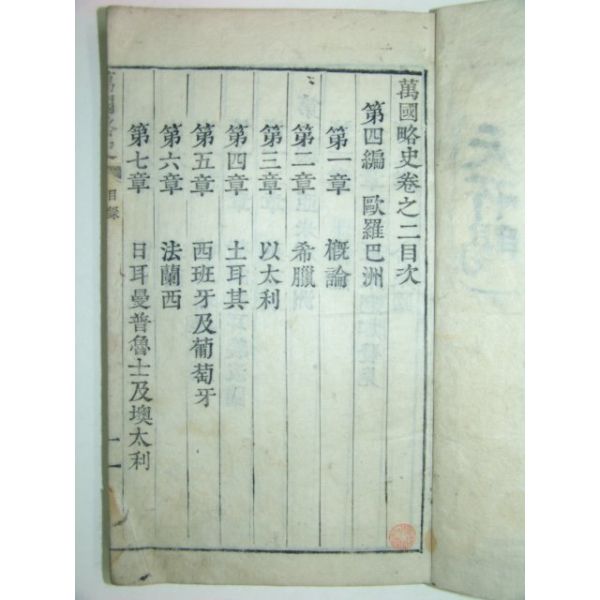 萬國略史卷之二目次
第四編 歐羅巴洲
第一章 槪論
第二章 希臘
第三章 以太利
第四章 土耳其
第五章 西班牙及葡萄牙
第六章 法蘭西
第七章 日耳曼普魯士及墺太利
目錄
一